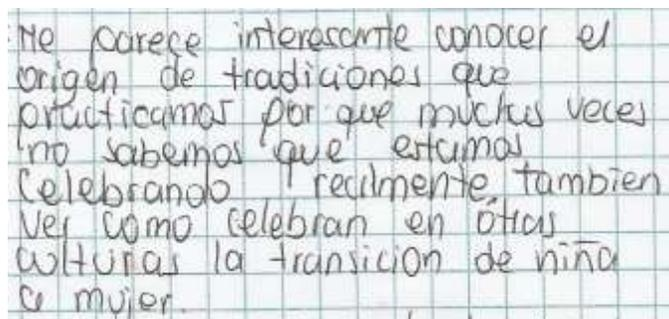 Me parece interesante conocer el
origen de tradiciones que
practicamos por que muchas veces
no sabemos que estamos
celebrando realmente, tambien
ver como celebran en otras
culturas la transicion de niña
a mujer.